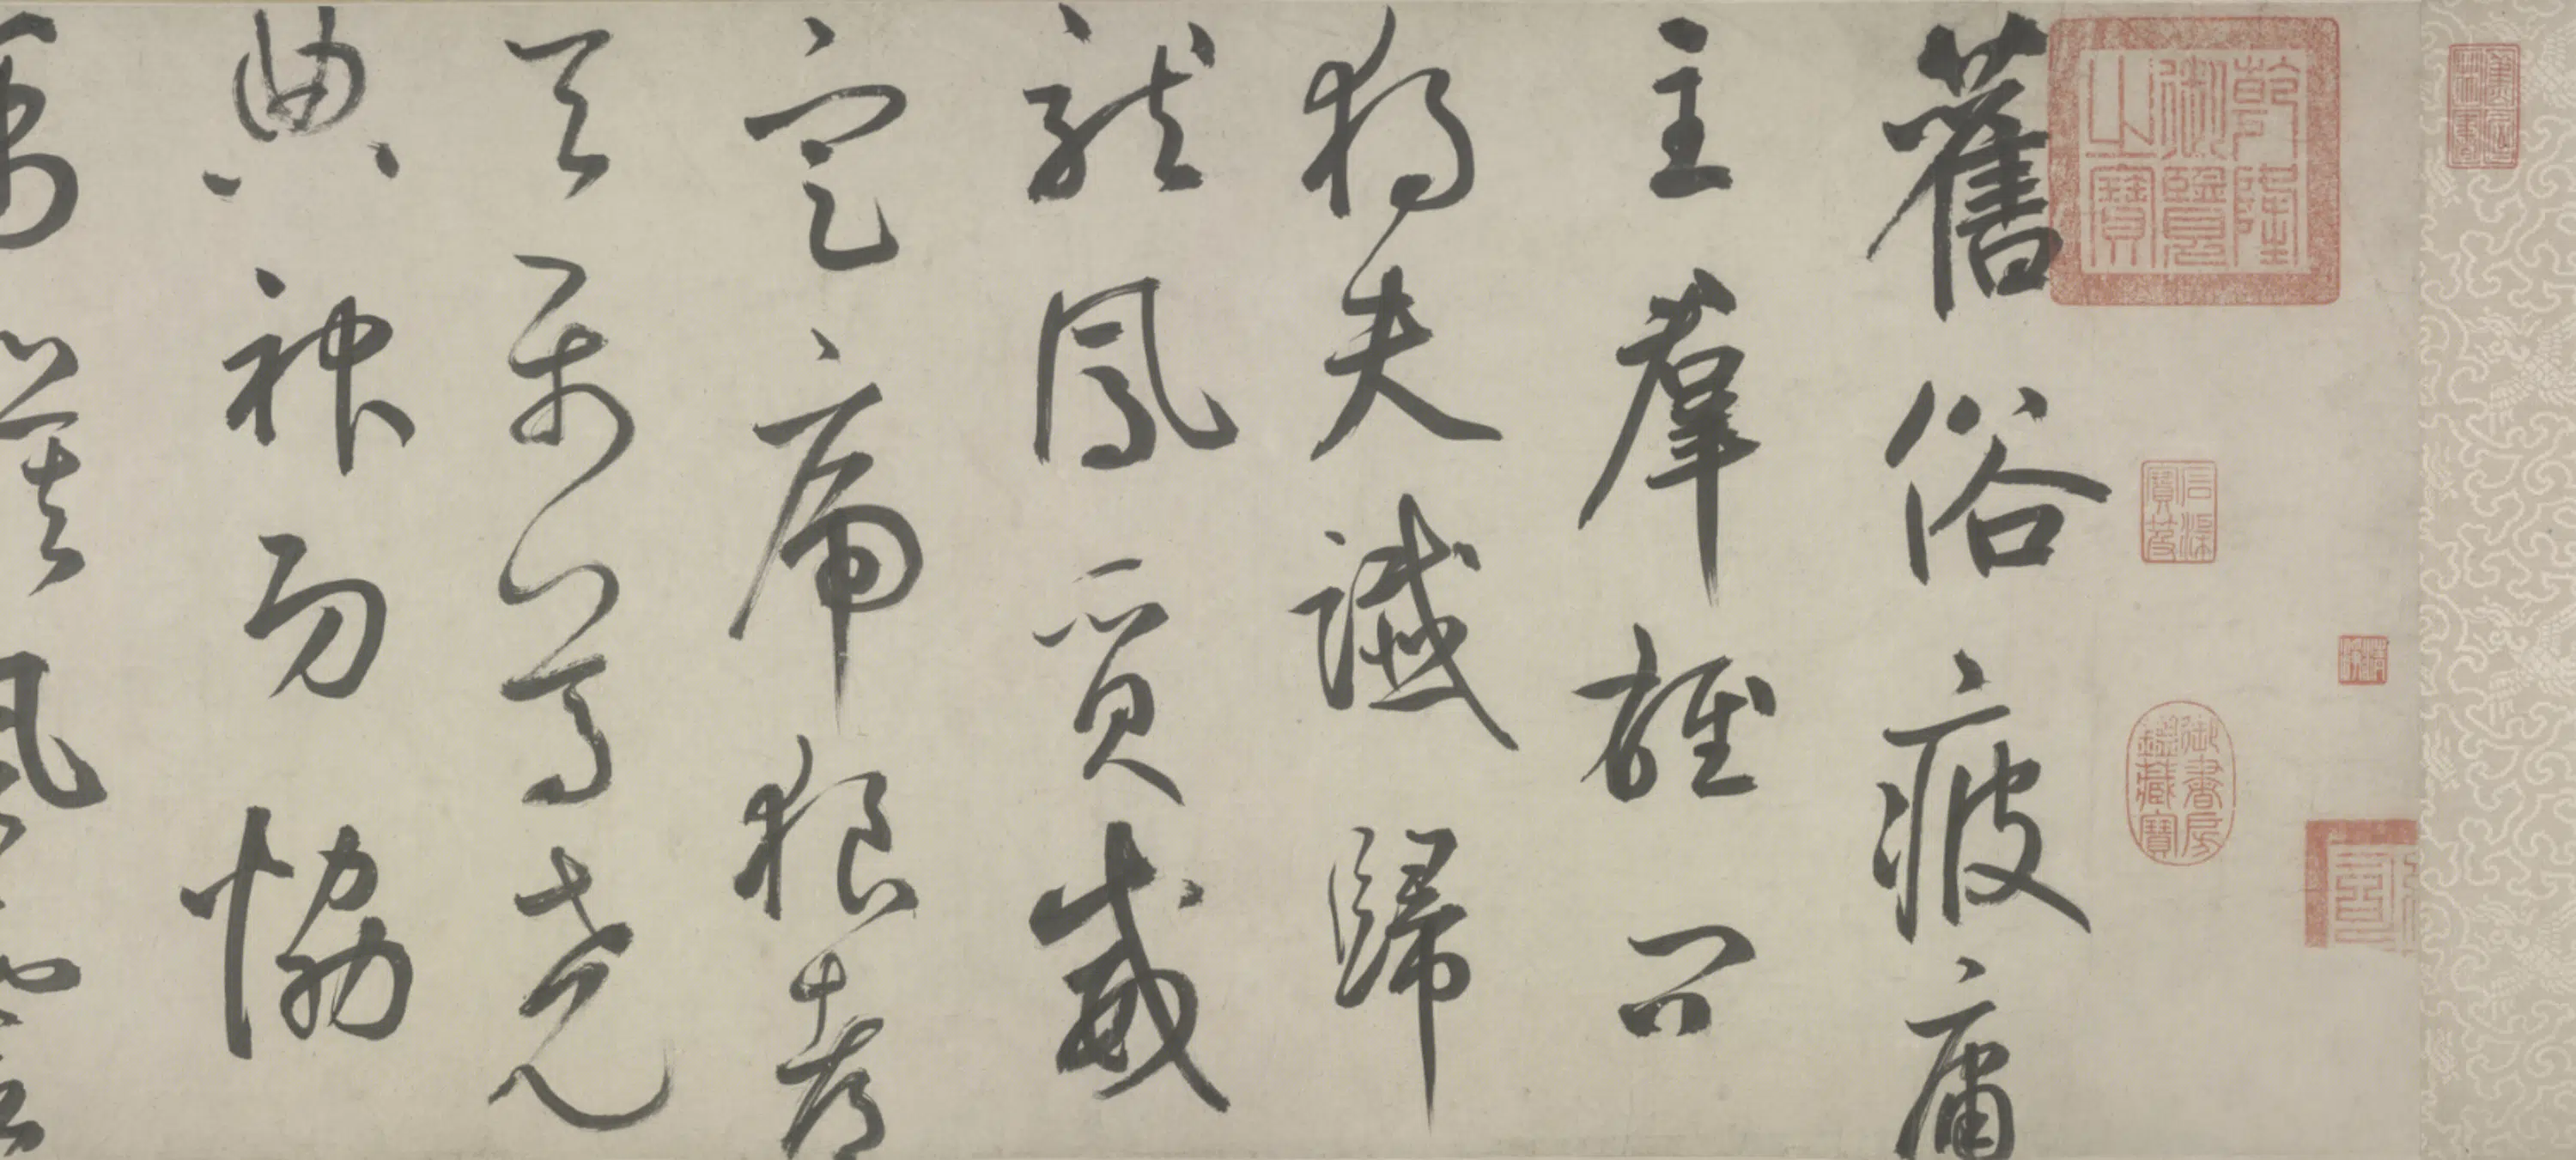 舊俗疲庸
主羣雄問
獨夫讖歸
龍鳳質威
定虎狼都
天屬尊堯
典神功協
禹謨風雲
乾隆御覽之寶
御書房鑑藏寶